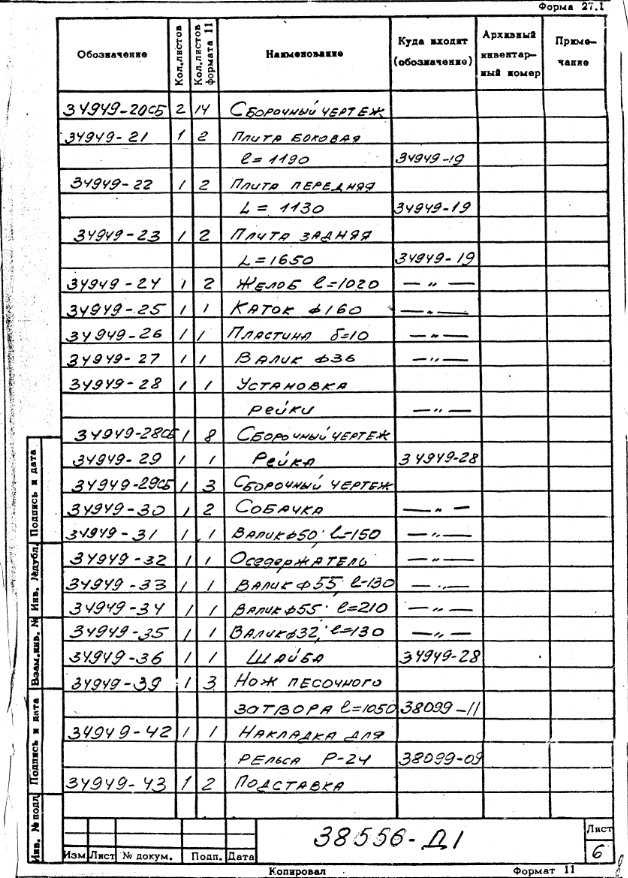 Форма 27.1
Обозначение Кол.листов Кол.листов формата 11 Наименование Куда входит (обозначение) Архивный инвентар-ный номер Приме-чание
34949-20СБ 2 14 Сборочный чертеж
34949-21 1 2 Плита боковая
l=1190 34949-19
34949-22 1 2 Плита передняя
L=1130 34949-19
34949-23 1 2 Плита задняя
L=1650 34949-19
34949-24 1 2 Желоб l=1020 — " —
34949-25 1 1 Каток ф160 — " —
34949-26 1 1 Пластина δ=10 — " —
34949-27 1 1 Валик ф36 — " —
34949-28 1 1 Установка
рейки — " —
34949-28СБ 1 8 Сборочный чертеж
34949-29 1 1 Рейка 34949-28
34949-29СБ 1 3 Сборочный чертеж
34949-30 1 2 Собачка — " —
34949-31 1 1 Валик ф50; l=150 — " —
34949-32 1 1 Оседержатель — " —
34949-33 1 1 Валик ф55; l=130 — " —
34949-34 1 1 Валик ф55; l=210 — " —
34949-35 1 1 Валик ф32; l=130 — " —
34949-36 1 1 Шайба 34949-28
34949-39 1 3 Нож песочного
затвора l=1050 38099-11
34949-42 1 1 Накладка для
рельса Р-24 38099-09
34949-43 1 2 Подставка
Подпись и дата
Инв. №дубл.
Взам.инв. №
Подпись и дата
Инв. № подл
38556-Д1
Лист
6
Изм Лист № докум. Подп. Дата
Копировал Формат 11